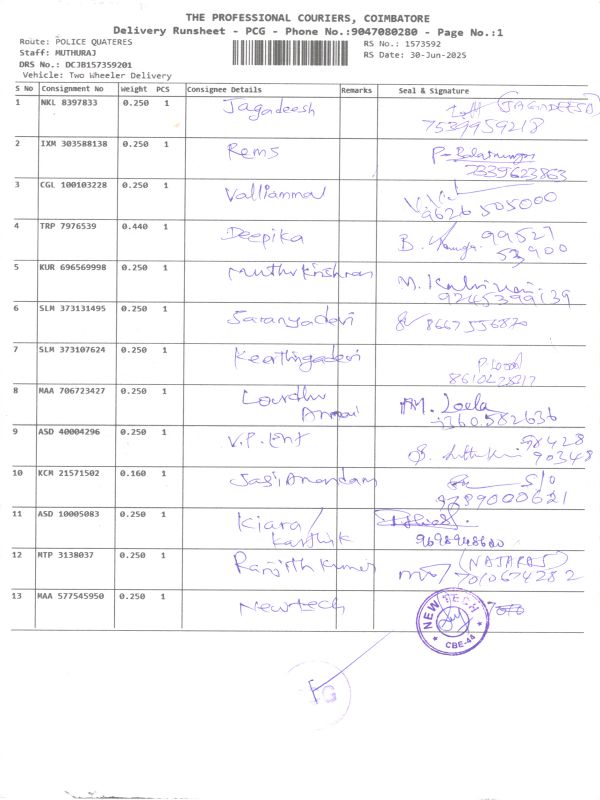 THE PROFESSIONAL COURIERS, COIMBATORE
Delivery Runsheet - PCG - Phone No.:9047080280 - Page No.:1
Route: POLICE QUATERES RS No.: 1573592
Staff: MUTHURAJ RS Date: 30-Jun-2025
DRS No.: DCJB157359201
Vehicle: Two Wheeler Delivery
S No Consignment No Weight PCS Consignee Details Remarks Seal & Signature
1 NKL 8397833 0.250 1 Jagadeesh (JAGADEESH)
7539959218
2 IXM 303588138 0.250 1 Rems
7339623863
3 CGL 100103228 0.250 1 Valliammal
9626 505000
4 TRP 7976539 0.440 1 Deepika 99527
53900
5 KUR 696569998 0.250 1 Muthu Krishnan
9245399139
6 SLM 373131495 0.250 1 Saranyadevi 8667556820
7 SLM 373107624 0.250 1 Keerthigadevi
8 MAA 706723427 0.250 1 Lourdhu M. Leela
Ammai 9360582636
9 ASD 40004296 0.250 1 V.P. Ent 98428
90348
10 KCM 21571502 0.160 1 Jasi Anandam S/o
9789000621
11 ASD 10005083 0.250 1 Kiara/
Karthik
12 MTP 3138037 0.250 1 Ranjith Kumar (NATARAJ)
7010674282
13 MAA 577545950 0.250 1 Newtech NEW TECH
CBE-44